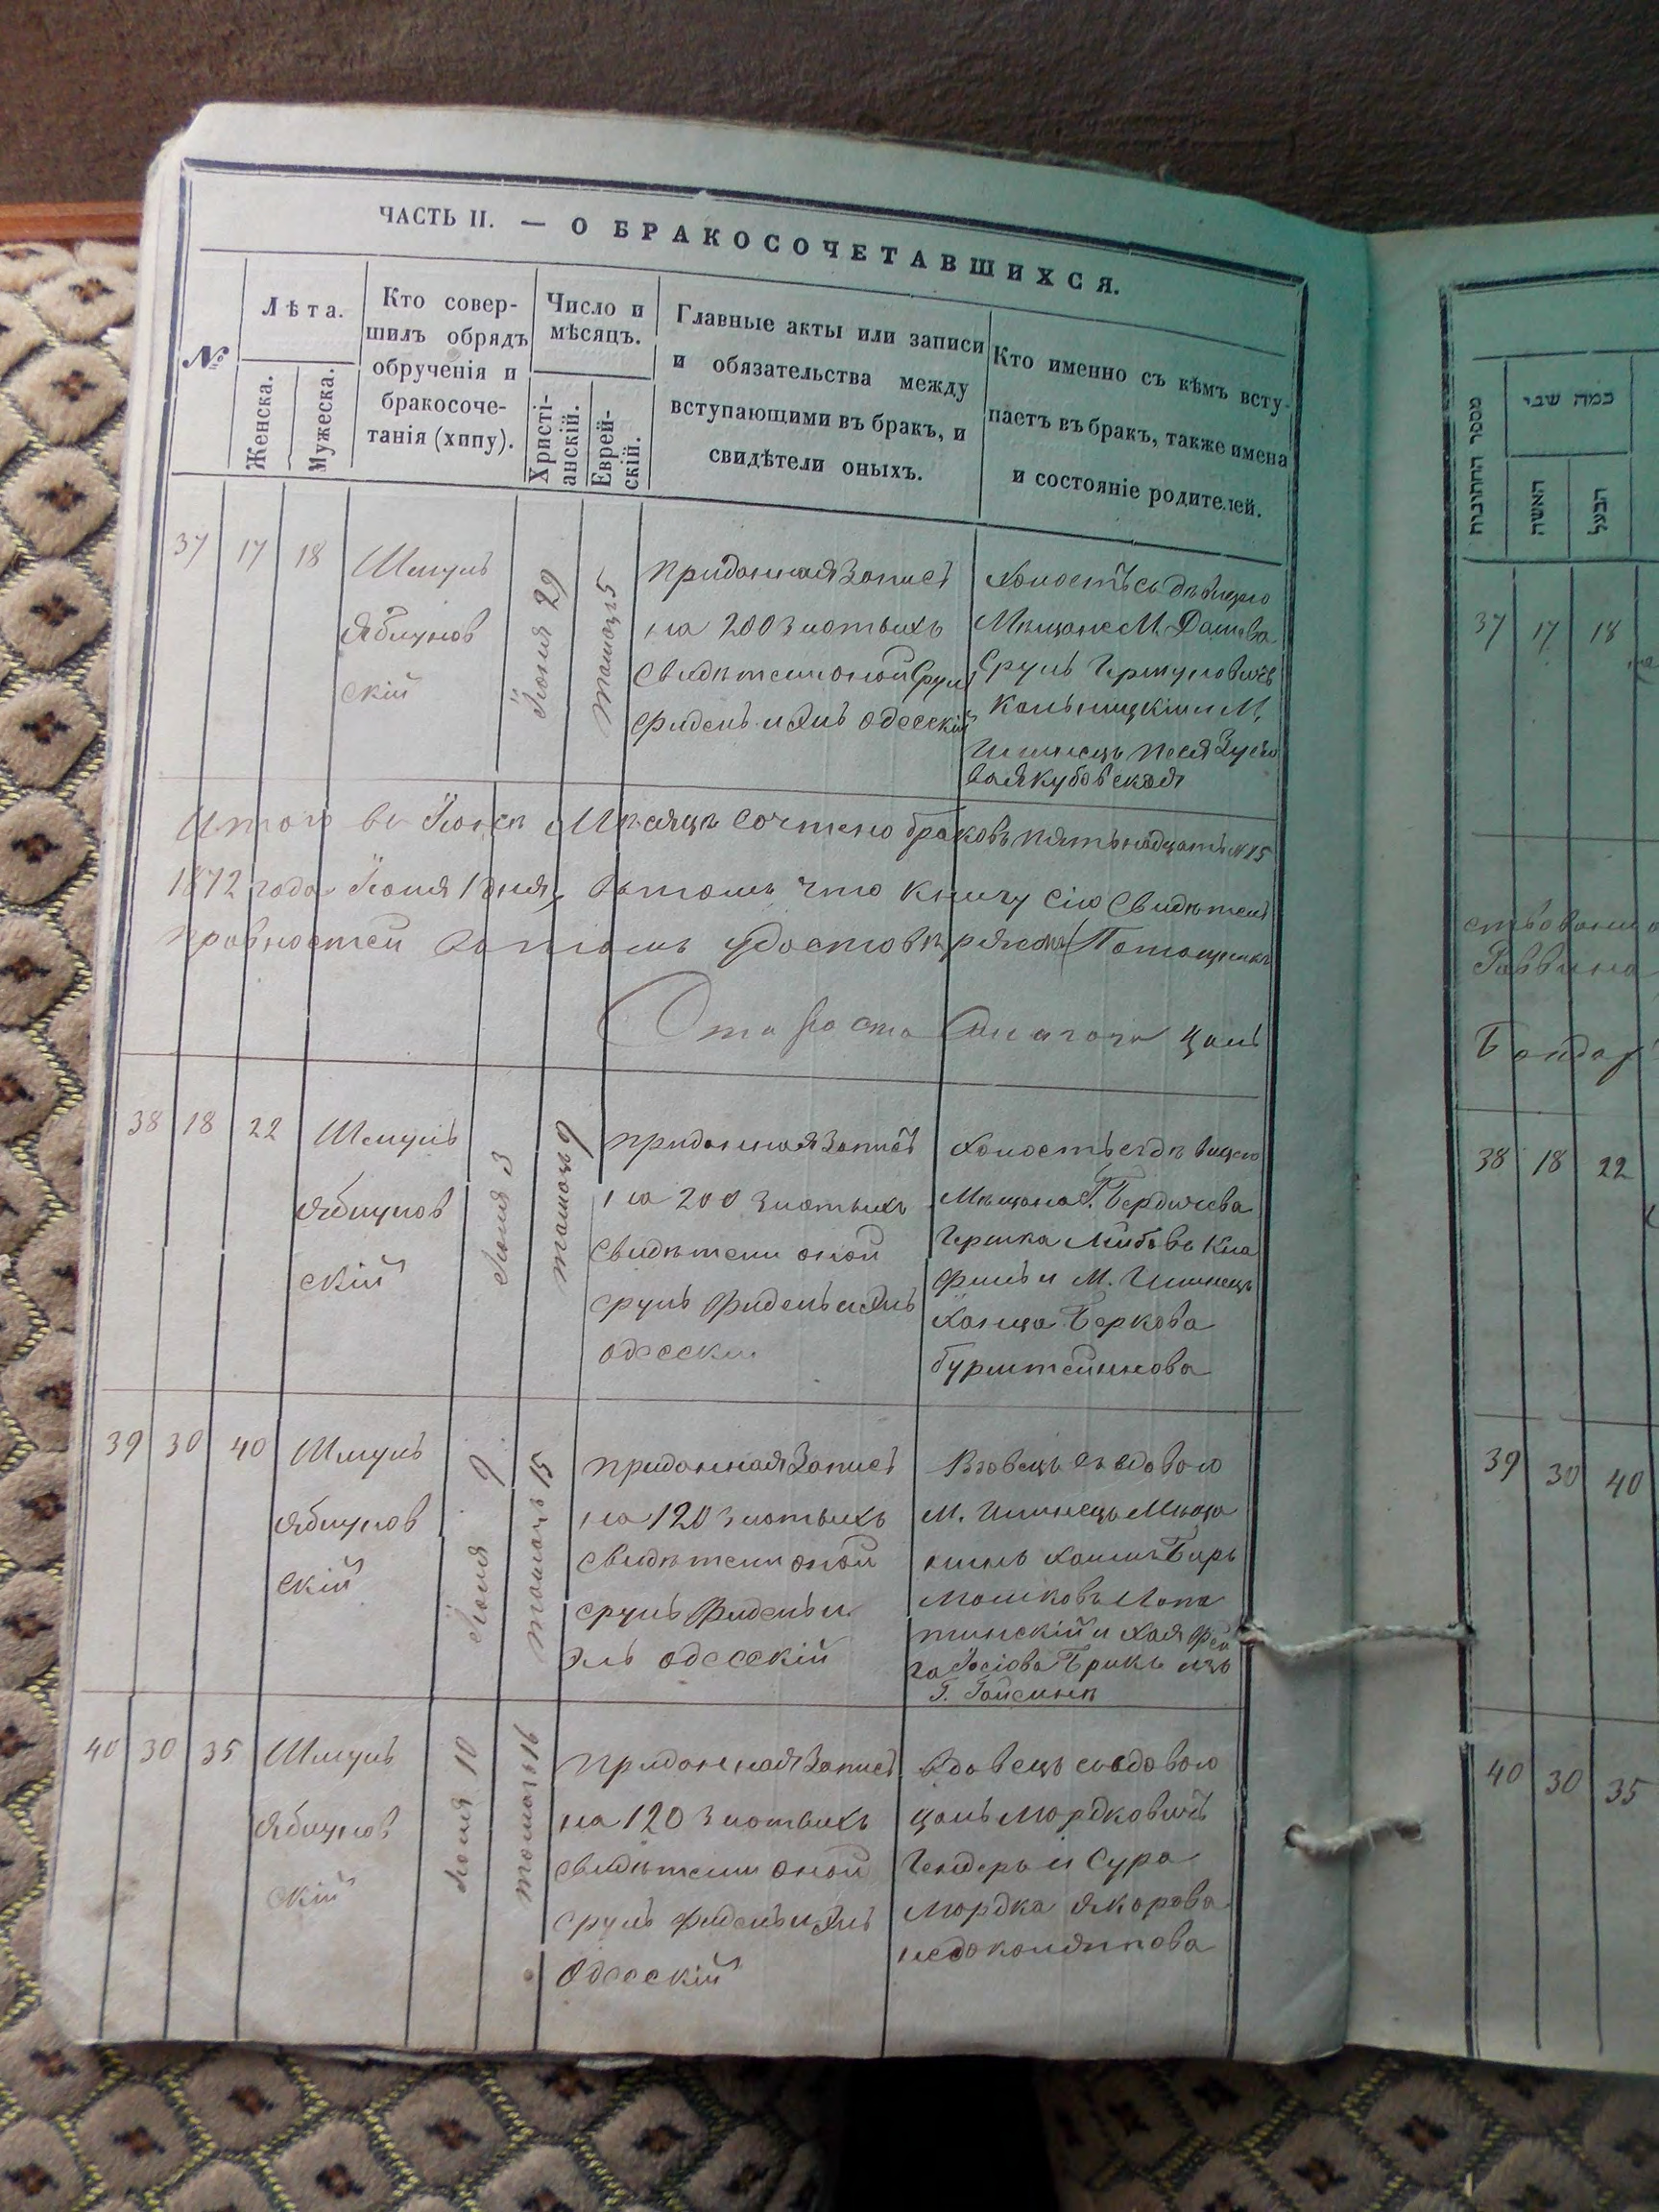 ЧАСТЬ II. — О БРАКОСОЧЕТАВШИХСЯ.
№
Лѣта.
Женска.
Мужеска.
Кто совер-
шилъ обрядъ
обрученія и
бракосоче-
танія (хппу).
Число и
мѣсяцъ.
Христі-
анскій.
Еврей-
скій.
Главные акты или записи
и обязательства между
вступающими въ бракъ, и
свидѣтели оныхъ.
Кто именно съ кѣмъ всту-
паетъ въ бракъ, также имена
и состояніе родителей.
37 17 18
Шмуль
Яблунов
скій
Іюня 29
томоцъ 5
приданная запись
на 200 злотыхъ
свидѣтели оной Сруль
Фидель и Эль Одесскій
Холостъ съ дѣвицею
Мѣщане М. Дашева
Сруль Гершуловичъ
Кальницкій и М.
Илинецъ Песя Зусіо
ва Якубовская
Итого въ Іюнѣ мѣсяцѣ сочтено браковъ пятьнадцать № 15
1872 года Іюля 1 дня, въ томъ что книгу сію свидѣтель
Староста Цаль
38 18 22
Шмуль
Яблунов
скій
Іюля 3
томоцъ 9
приданная запись
на 200 злотыхъ
свидѣтели оной
Сруль Фидель и Эль
Одесскій
Холостъ съ дѣвицею
Мѣщане Г. Бердичева
Гершка Лейбовъ
и М. Илинецъ
Беркова
Бурштейнова
39 30 40
Шмуль
Яблунов
скій
Іюля 9
томоцъ 15
приданная запись
на 120 злотыхъ
свидѣтели оной
Сруль Фидель и
Эль Одесскій
Вдовецъ съ вдовою
М. Илинецъ Мѣща
нинъ Хаимъ Беръ
Мошковъ Лопа
тинскій и Хая Фей
га Іосіова Брикъ изъ
Г. Гайсинѣ
40 30 35
Шмуль
Яблунов
скій
Іюля 10
томоцъ 16
приданная запись
на 120 злотыхъ
свидѣтели оной
Сруль Фидель и Эль
Одесскій
Вдовецъ съ вдовою
Цаль Мордковичъ
и Сура
Мордка
מספר החתונות
כמה שני
האשה
הבעל
37 17 18
Раввина
Бондар
38 18 22
39 30 40
40 30 35